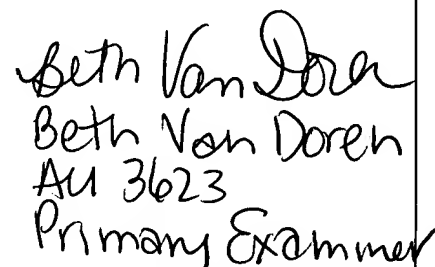 Beth Van Doren
Beth Van Doren
AU 3623
Primary Examiner